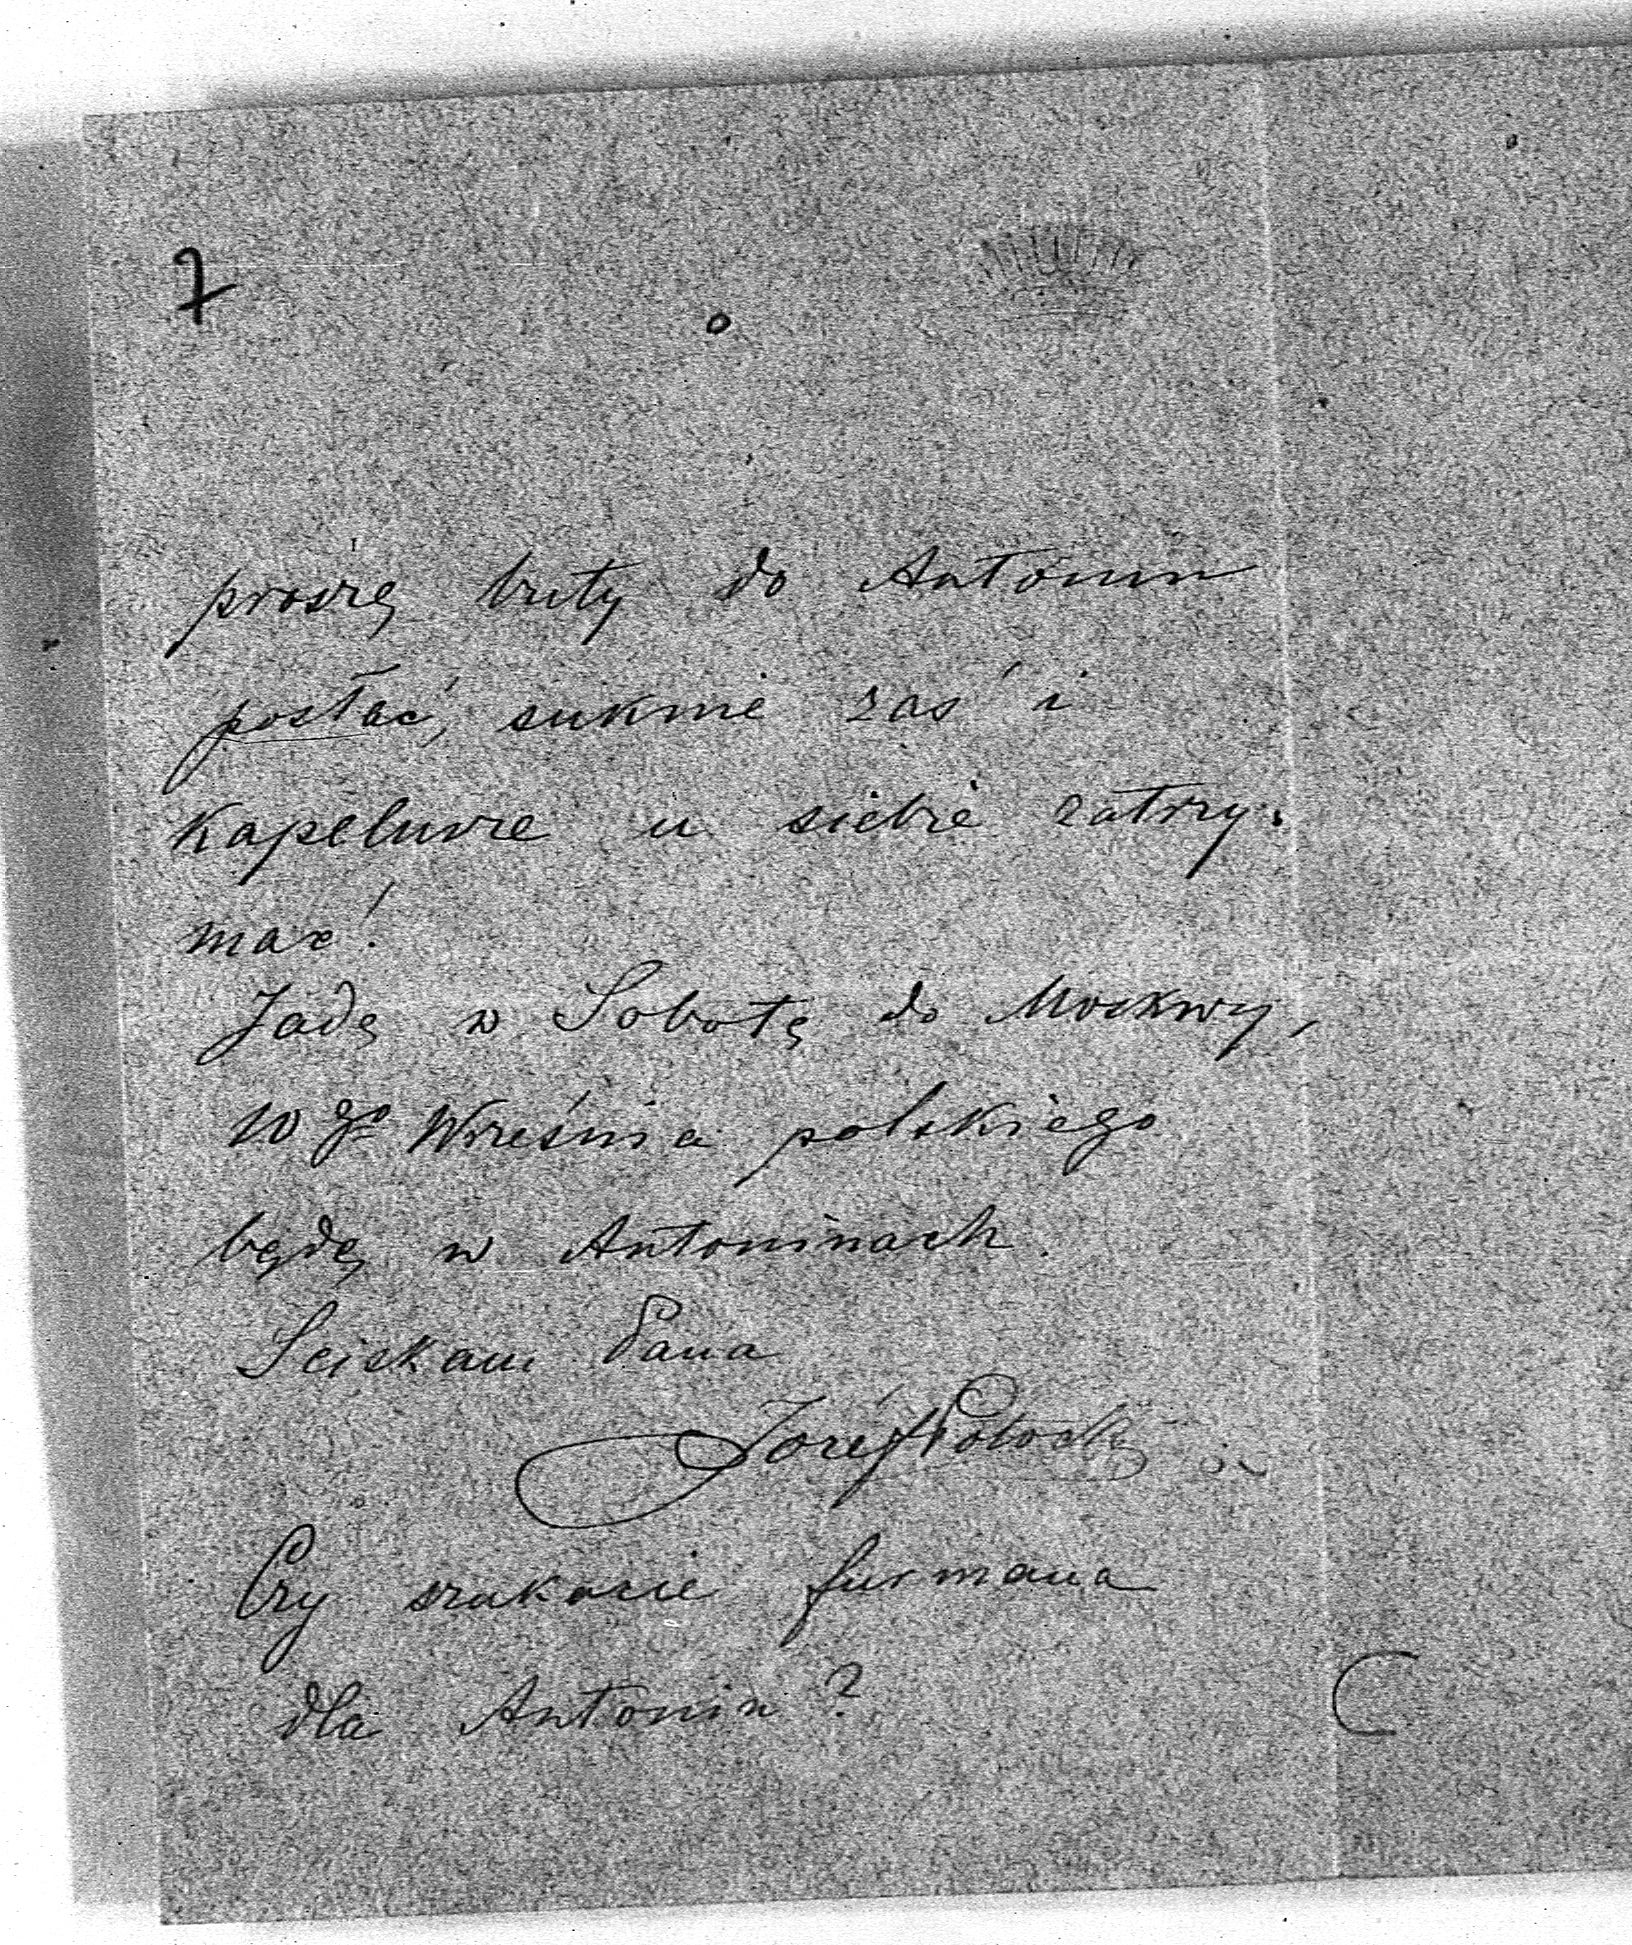 7
proszę buty do Antonin
posłać, suknie zaś i
kapelusze u siebie zatrzy-
mać!
Jadę w Sobotę do Moskwy,
10 go Września polskiego
będę w Antoninach.
Sciskam Pana
Józef Potocki
Czy szukacie furmana
dla Antonin?